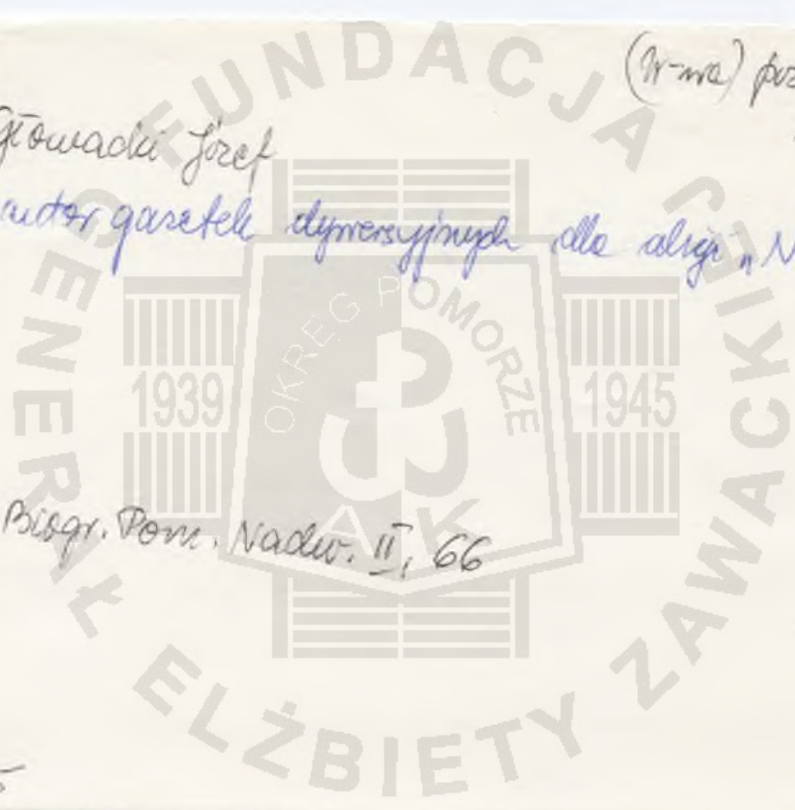 (W-wa)
Głowacki Józef
autor gazetek dywersyjnych dla akcji „N
Biogr. Pom. Nadw. II, 66
FUNDACJA GENERAŁ ELŻBIETY ZAWACKIEJ
OKRĘG POMORZE
1939 1945
AK